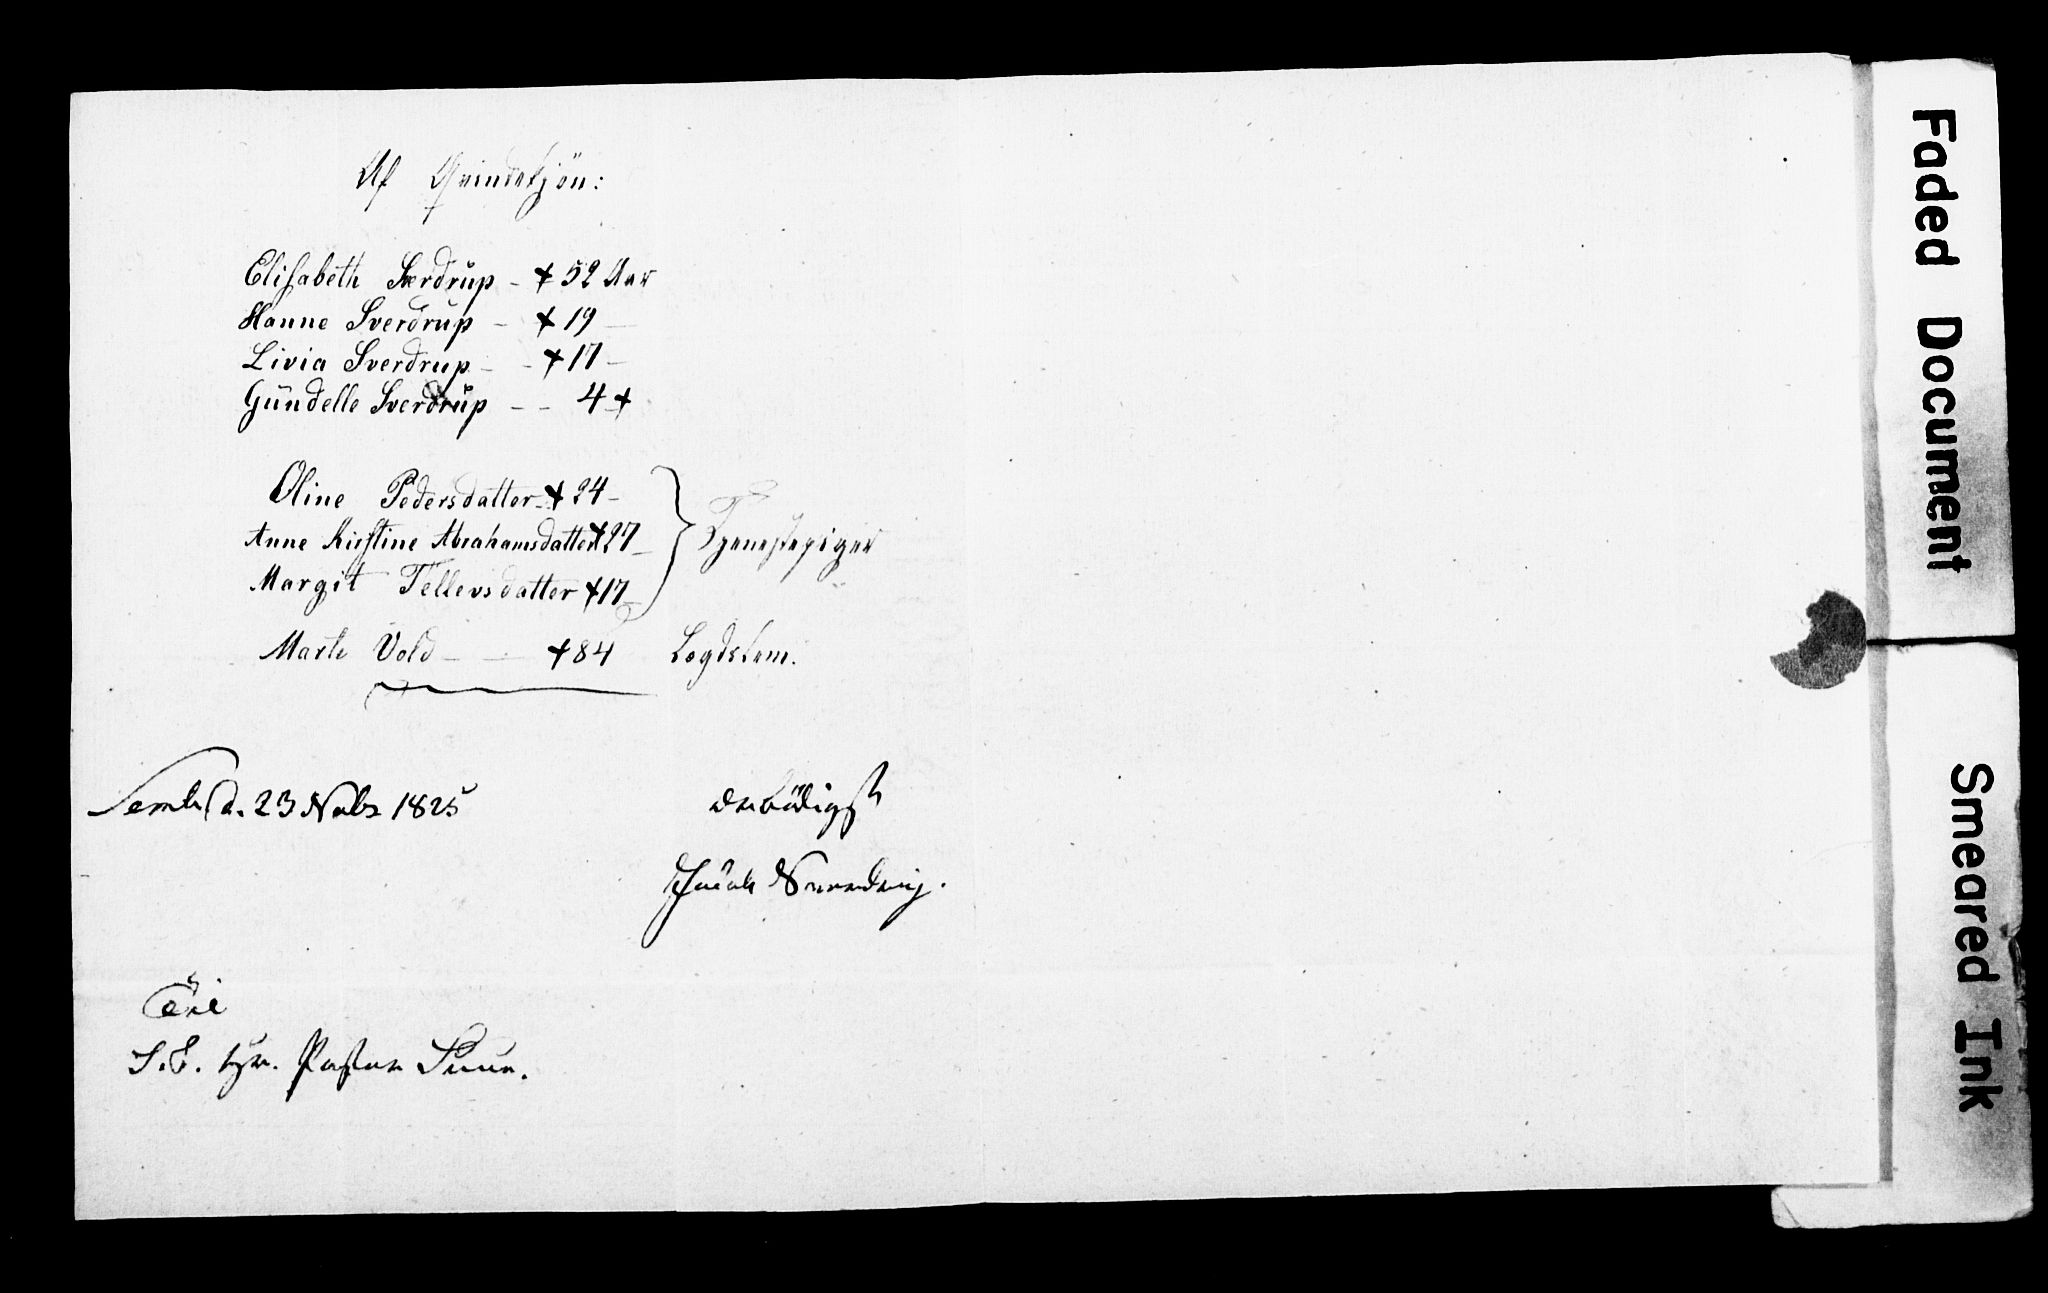 Af Qvindekjön:
Elisabeth Sverdrup - + 52 Aar
Hanne Sverdrup - + 19 -
Livia Sverdrup - - + 17 -
Gündelle Sverdrüp - - 4 +
Oline Pedersdatter - + 24 -
Anne Kirstine Abrahamsdatter + 27 -
Margit Tellevsdatter + 17 -
Tjenestepiger
Marte Vold - - + 84 Lægdslem.
Semb d. 23 Novbr 1825
ærbödigst
Jacob Sverdrup.
Til
S. T. Hr. Pastor
Faded Document
Smeared Ink